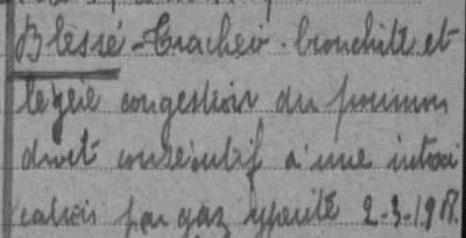 Blessé - Trachéo-bronchite et
légère congestion du poumon
droit consécutif à une intoxi
cation par gaz ypérité 2-3-1918.